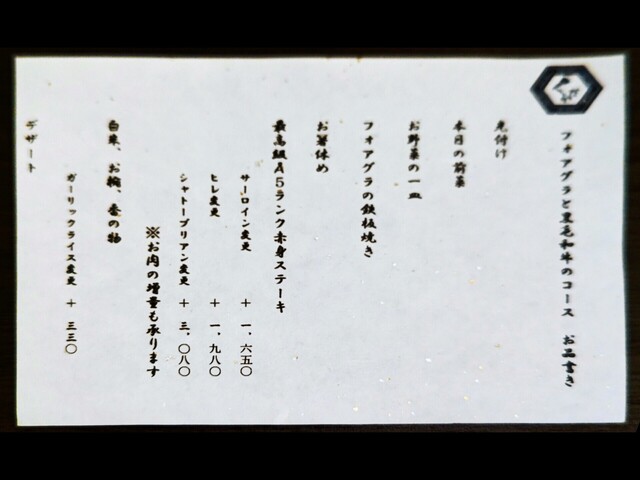 フォアグラと黒毛和牛のコース　お品書き
先付け
本日の前菜
お野菜の一皿
フォアグラの鉄板焼き
お箸休め
最高級A5ランク赤身ステーキ
サーロイン変更　＋　一、六五〇
ヒレ変更　＋　一、九八〇
シャトーブリアン変更　＋　三、〇八〇
※お肉の増量も承ります
白米、お椀、香の物
ガーリックライス変更　＋　三三〇
デザート